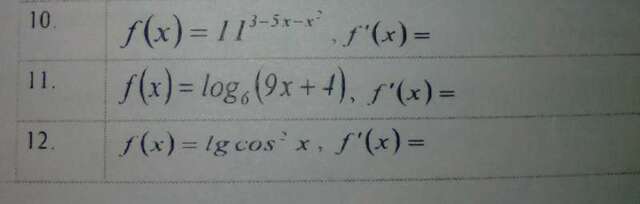 10. f(x) = 11^{3-5x-x²}, f'(x) =
11. f(x) = log₆(9x + 4), f'(x) =
12. f(x) = lg cos² x, f'(x) =